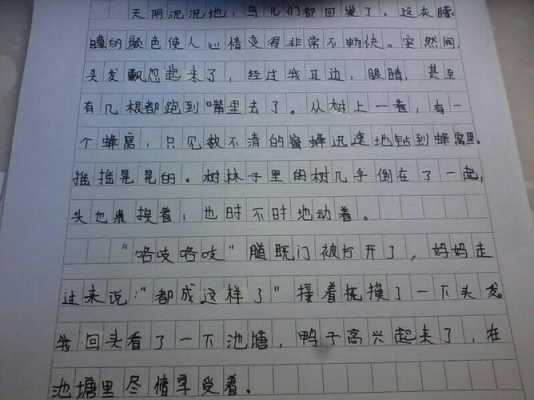 天阴沉沉地，鸟儿们都回巢了。这灰朦
朦的颜色使人心情变得非常不畅快。突然间，
头发飘忽起来了，经过我耳边，眼睛，甚至
有几根都跑到嘴里去了。从树上一看，有一
个蜂窝，只见数不清的蜜蜂迅速地钻到蜂窝里。
摇摇晃晃的。树林子里的树几乎倒在了一起，
头也紧挨着，也时不时地动着。
"咯吱咯吱"随既门被打开了，妈妈走
过来说："都成这样了"接着抚摸了一下头发。
我回头看了一下池塘，鸭子高兴起来了，在
池塘里尽情享受着。